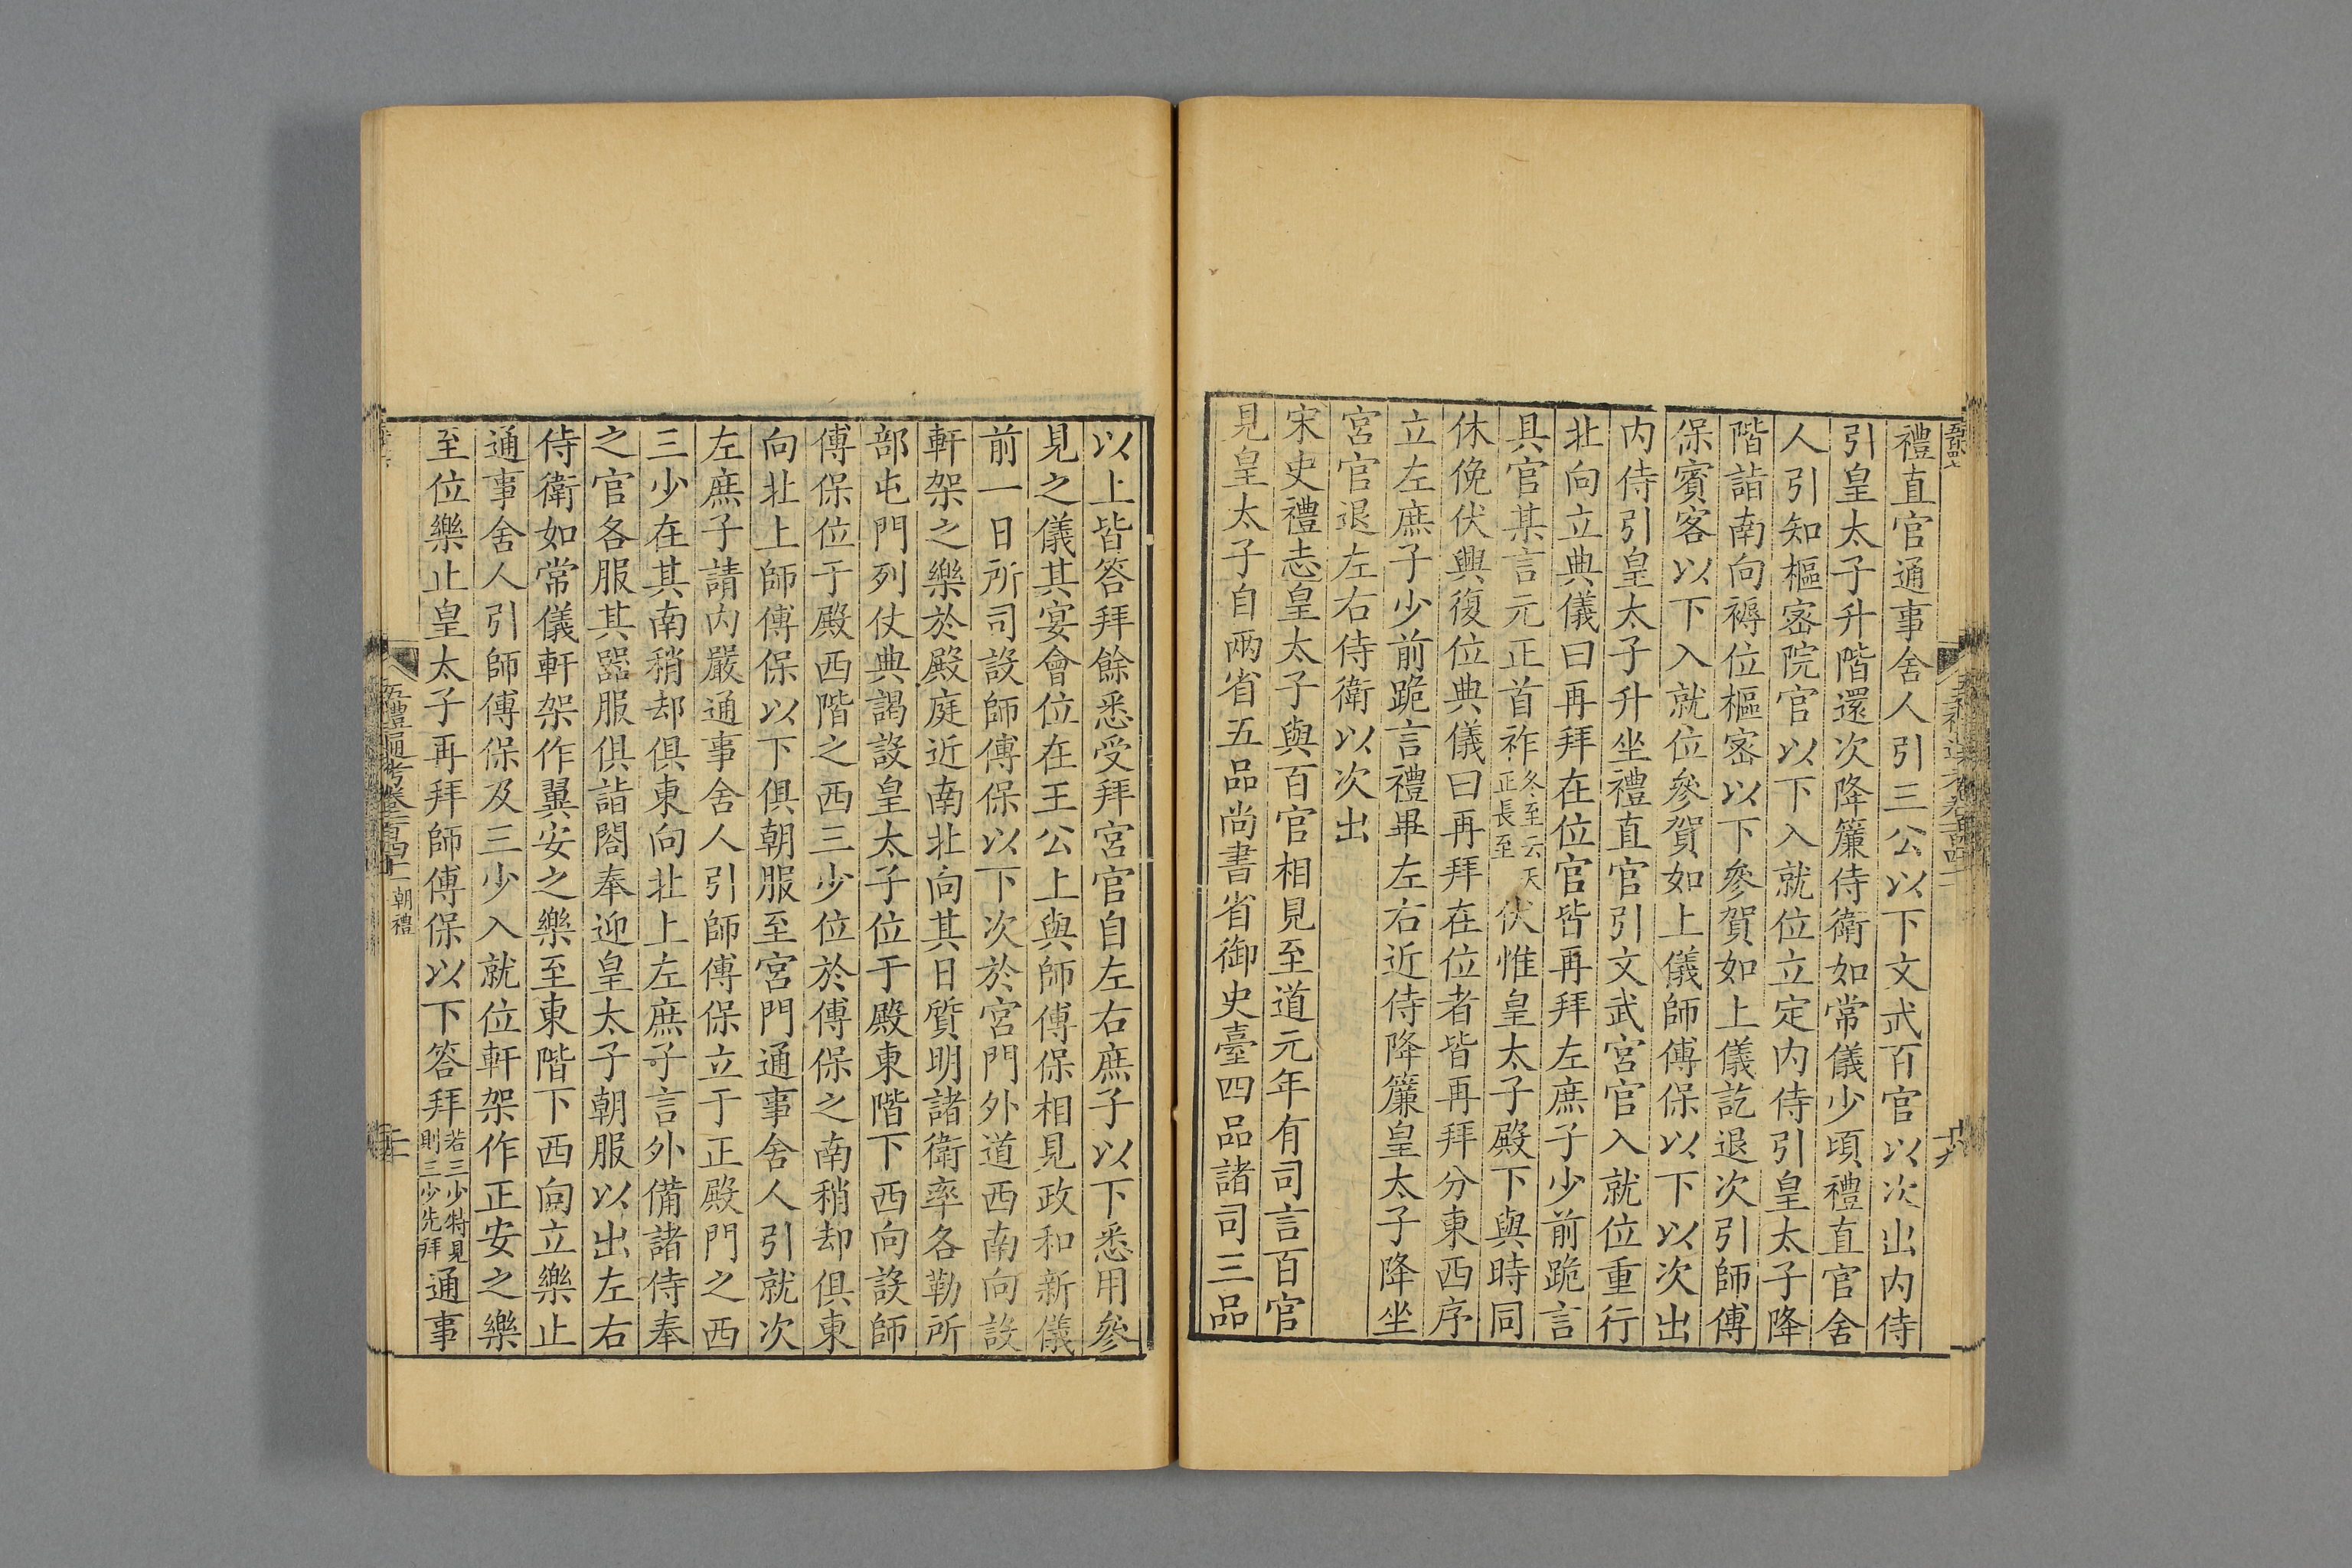 禮直官通事舍人引三公以下文武百官以次出内侍
引皇太子升階還次降簾侍衛如常儀少頃禮直官舍
人引知樞宻院官以下入就位立定内侍引皇太子降
階詣南向褥位樞宻以下參賀如上儀訖退次引師傅
保賓客以下入就位參賀如上儀師傅保以下以次出
内侍引皇太子升坐禮直官引文武宮官入就位重行
北向立典儀曰再拜在位官皆再拜左庶子少前跪言
具官某言元正首祚冬至云天正長至伏惟皇太子殿下與時同
休俛伏興復位典儀曰再拜在位者皆再拜分東西序
立左庶子少前跪言禮畢左右近侍降簾皇太子降坐
宮官退左右侍衛以次出
宋史禮志皇太子與百官相見至道元年有司言百官
見皇太子自兩省五品尚書省御史臺四品諸司三品
以上皆答拜餘悉受拜宮官自左右庶子以下悉用參
見之儀其宴會位在王公上與師傅保相見政和新儀
前一日所司設師傅保以下次於宮門外道西南向設
軒架之樂於殿庭近南北向其日質明諸衛率各勒所
部屯門列仗典謁設皇太子位于殿東階下西向設師
傅保位于殿西階之西三少位於傅保之南稍却俱東
向北上師傅保以下俱朝服至宮門通事舍人引就次
左庶子請内嚴通事舍人引師傅保立于正殿門之西
三少在其南稍却俱東向北上左庶子言外備諸侍奉
之官各服其器服俱詣閤奉迎皇太子朝服以出左右
侍衛如常儀軒架作翼安之樂至東階下西向立樂止
通事舍人引師傅保及三少入就位軒架作正安之樂
至位樂止皇太子再拜師傅保以下答拜若三少特見則三少先拜通事
五禮通考卷一百四十二 朝禮